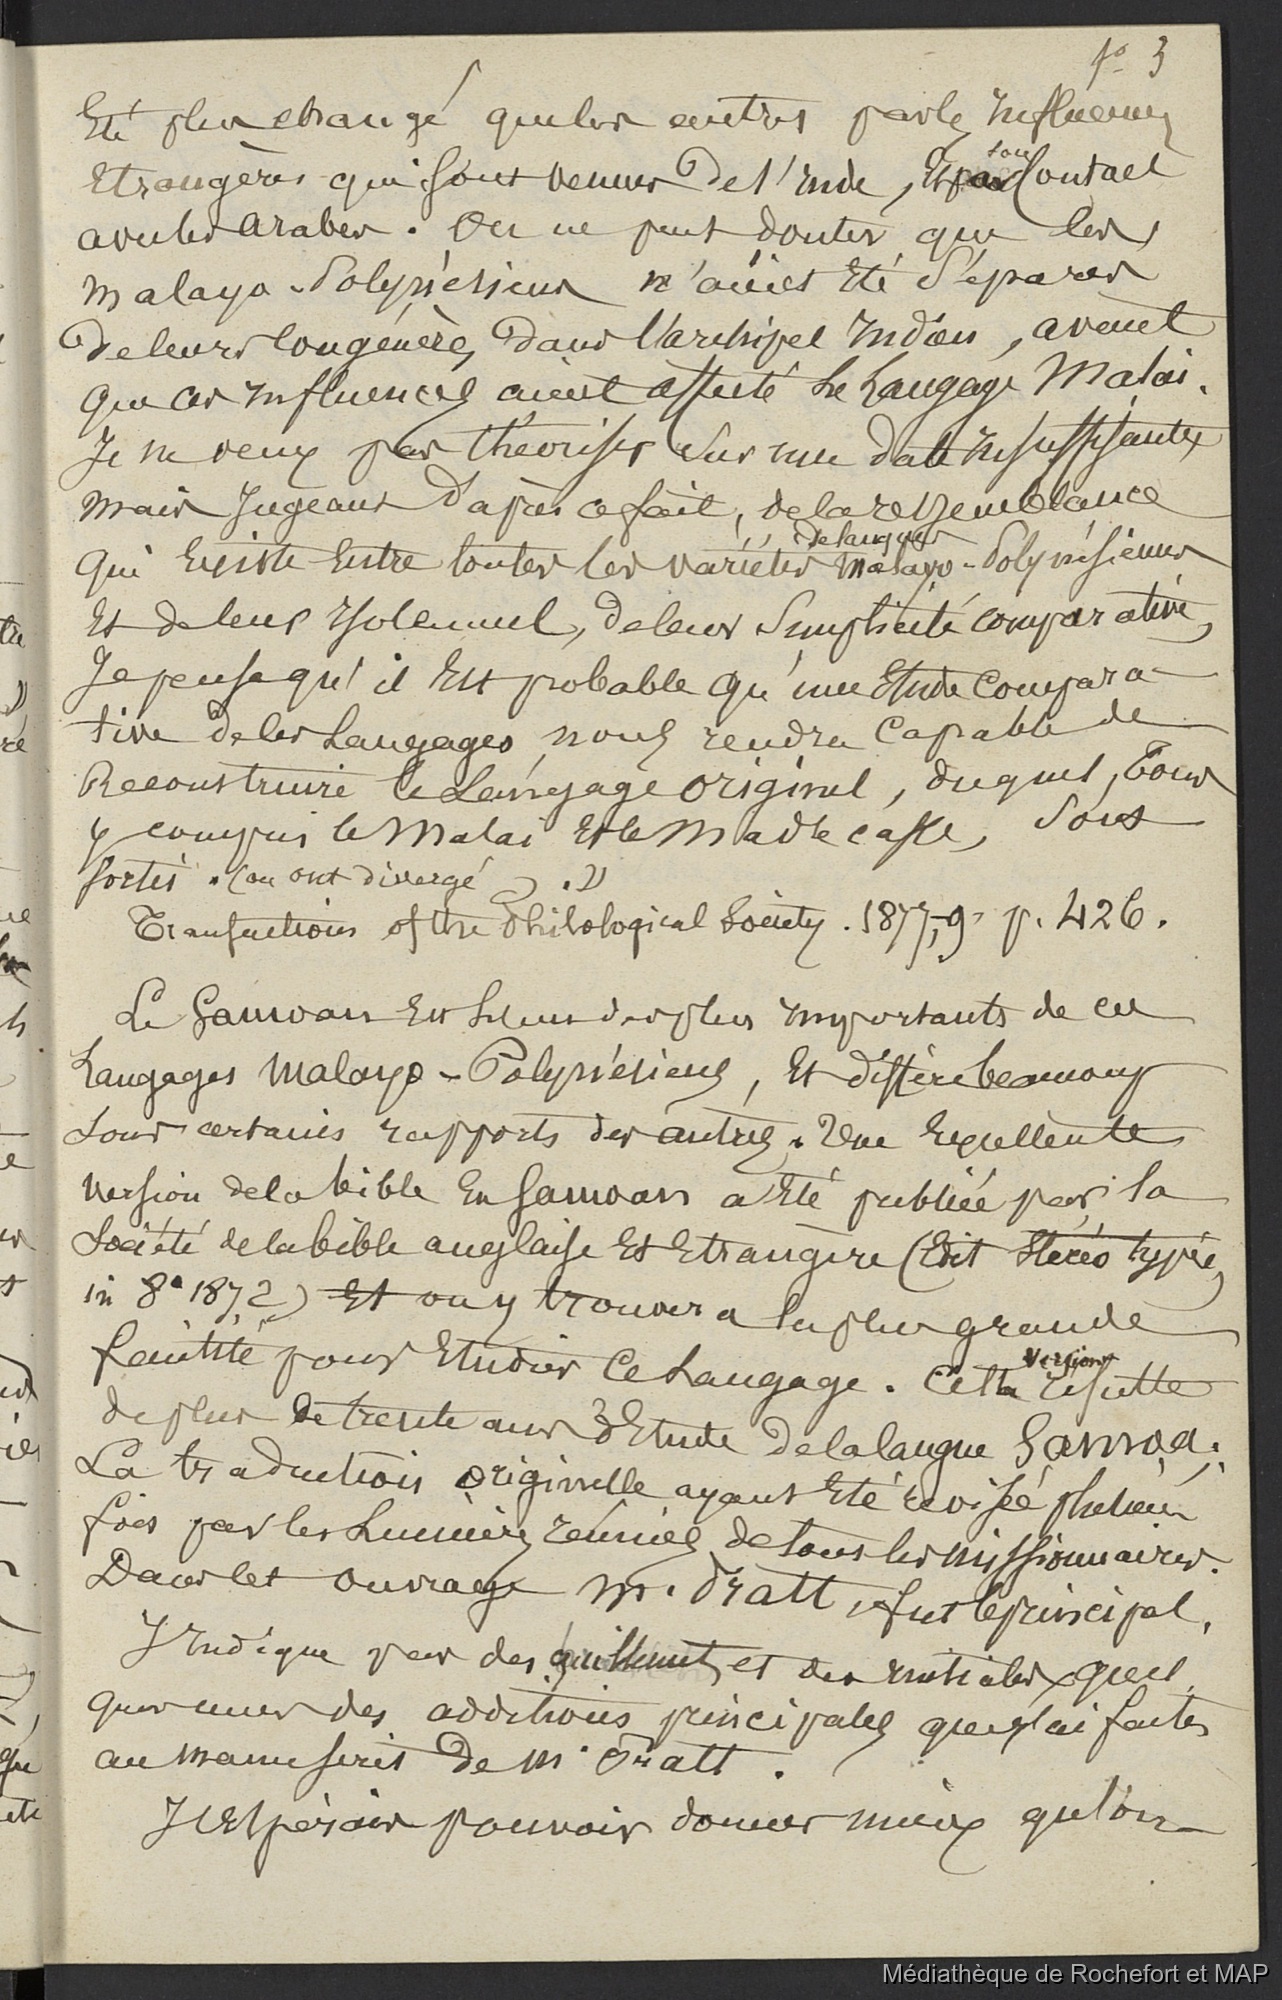 fo 3
Eté plus changé que les autres par les Influences
Etrangères qui sont venues de l'Inde, Et par son Contact
avec les arabes. On ne peut douter que les
malayo-Polynésiens n'aient Eté Séparés
de leurs Congénères, dans l'archipel Indien, avant
que ces Influences aient affecté Le Langage Malai.
Je ne veux pas théoriser sur une data Insuffisante,
mais Jugeant d'après ce fait, de la ressemblance
qui Existe Entre toutes les variétés de langues malayo-Polynésiennes
Et de leur Isolement, de leur Simplicité comparative,
Je pense qu'il Est probable qu'une Etude Compara-
tive de les Langages, nous rendra Capable de
Reconstruire le Langage originel, duquel, Tous
y compris le Malai Et le Madécasse, Sont
sortis. (ou ont divergé ) .»
Transactions of the Philological Society. 1877,-9- p. 426.
Le Samoan Est L'un des plus Importants de ces
Langages Malayo-Polynésiens, Et diffère beaucoup
sous certains rapports des autres. Une Excellente
version de la bible En Samoan a Eté publiée par la
Société de la bible anglaise Et Etrangère (Edit Stéréotypée,
in 8° 1872) Et on y trouvera la plus grande
facilité pour Etudier Ce Langage. Cette version résulte
de plus de trente ans d'Etude de la langue Samoa.
La traduction originelle ayant Eté revisée plusieurs
fois par les Lumières réunies de tous les missionnaires.
Dans cet ouvrage M. Pratt, fut le principal.
J'Indique par des guillemets et des initiales, quel-
ques unes des additions principales que j'ai faites
au manuscrit de Mr Pratt.
J'Espérais pouvoir donner mieux qu'on
Médiathèque de Rochefort et MAP